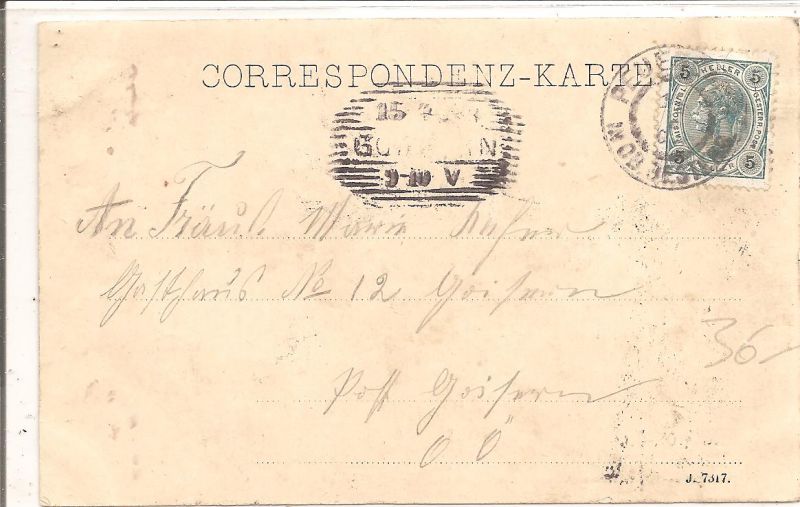 CORRESPONDENZ-KARTE
5 HELLER 5
5 5
15
9-10 V
An Fräul. Marie
Gasthaus No 12 Goisern
Post Goisern
O Ö
36
J. 7317.